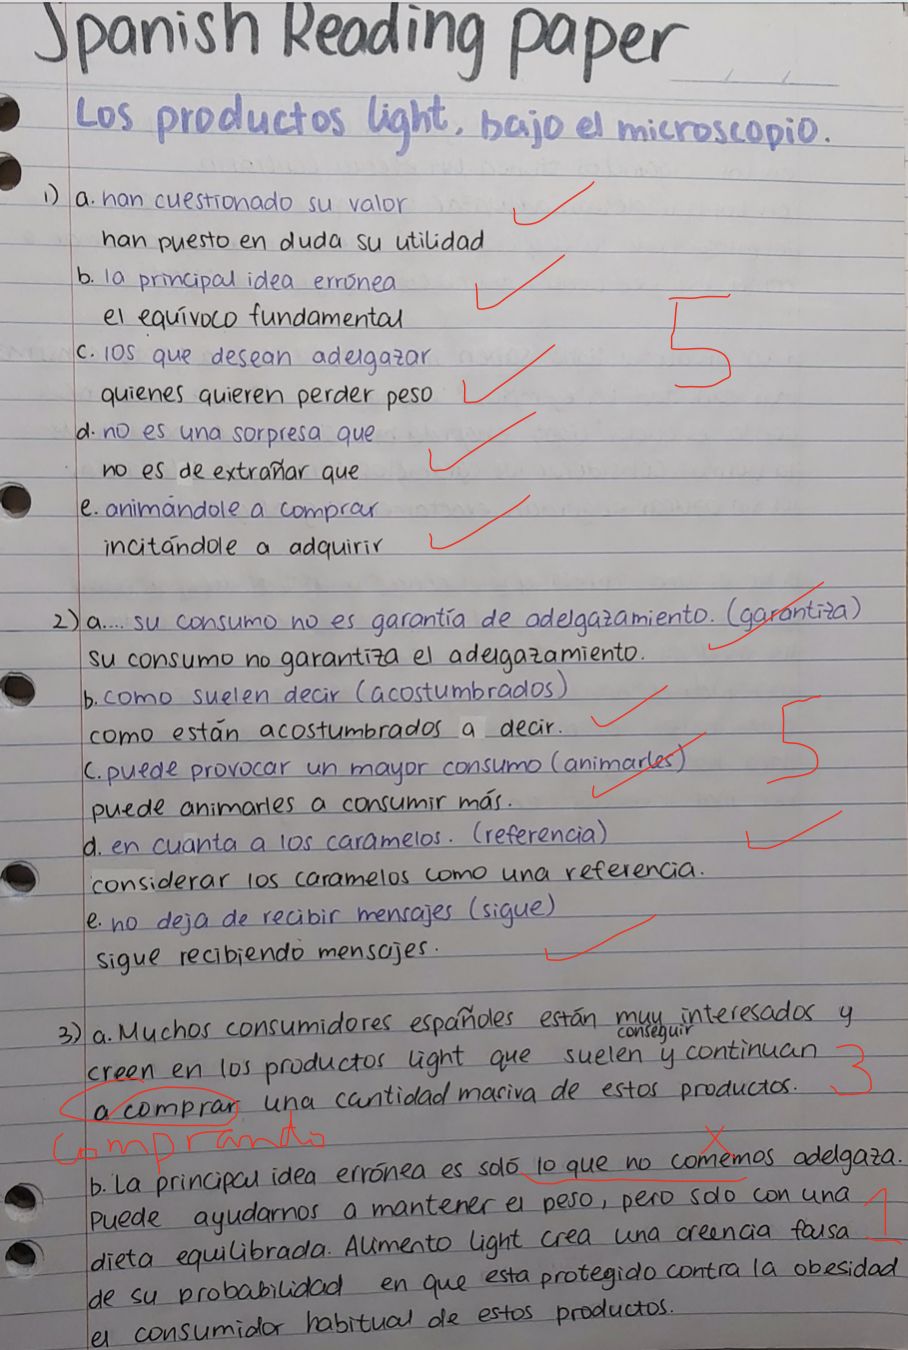 Spanish Reading paper
Los productos light, bajo el microscopio.
1) a. han cuestionado su valor
han puesto en duda su utilidad
b. la principal idea errónea
el equívoco fundamental
5
c. los que desean adelgazar
quienes quieren perder peso
d. no es una sorpresa que
no es de extrañar que
e. animándole a comprar
incitándole a adquirir
2) a.... su consumo no es garantía de adelgazamiento. (garantiza)
su consumo no garantiza el adelgazamiento.
b. como suelen decir (acostumbrados)
como están acostumbrados a decir.
5
c. puede provocar un mayor consumo (animarles)
puede animarles a consumir más.
d. en cuanta a los caramelos. (referencia)
considerar los caramelos como una referencia.
e. no deja de recibir mensajes (sigue)
sigue recibiendo mensajes.
3) a. Muchos consumidores españoles están muy interesados y
conseguir
creen en los productos light que suelen y continuan
a comprar una cantidad masiva de estos productos. 3
comprando
b. La principal idea errónea es solo lo que no comemos adelgaza.
Puede ayudarnos a mantener el peso, pero solo con una
dieta equilibrada. Alimento light crea una creencia falsa 1
de su probabilidad en que esta protegido contra la obesidad
el consumidor habitual de estos productos.